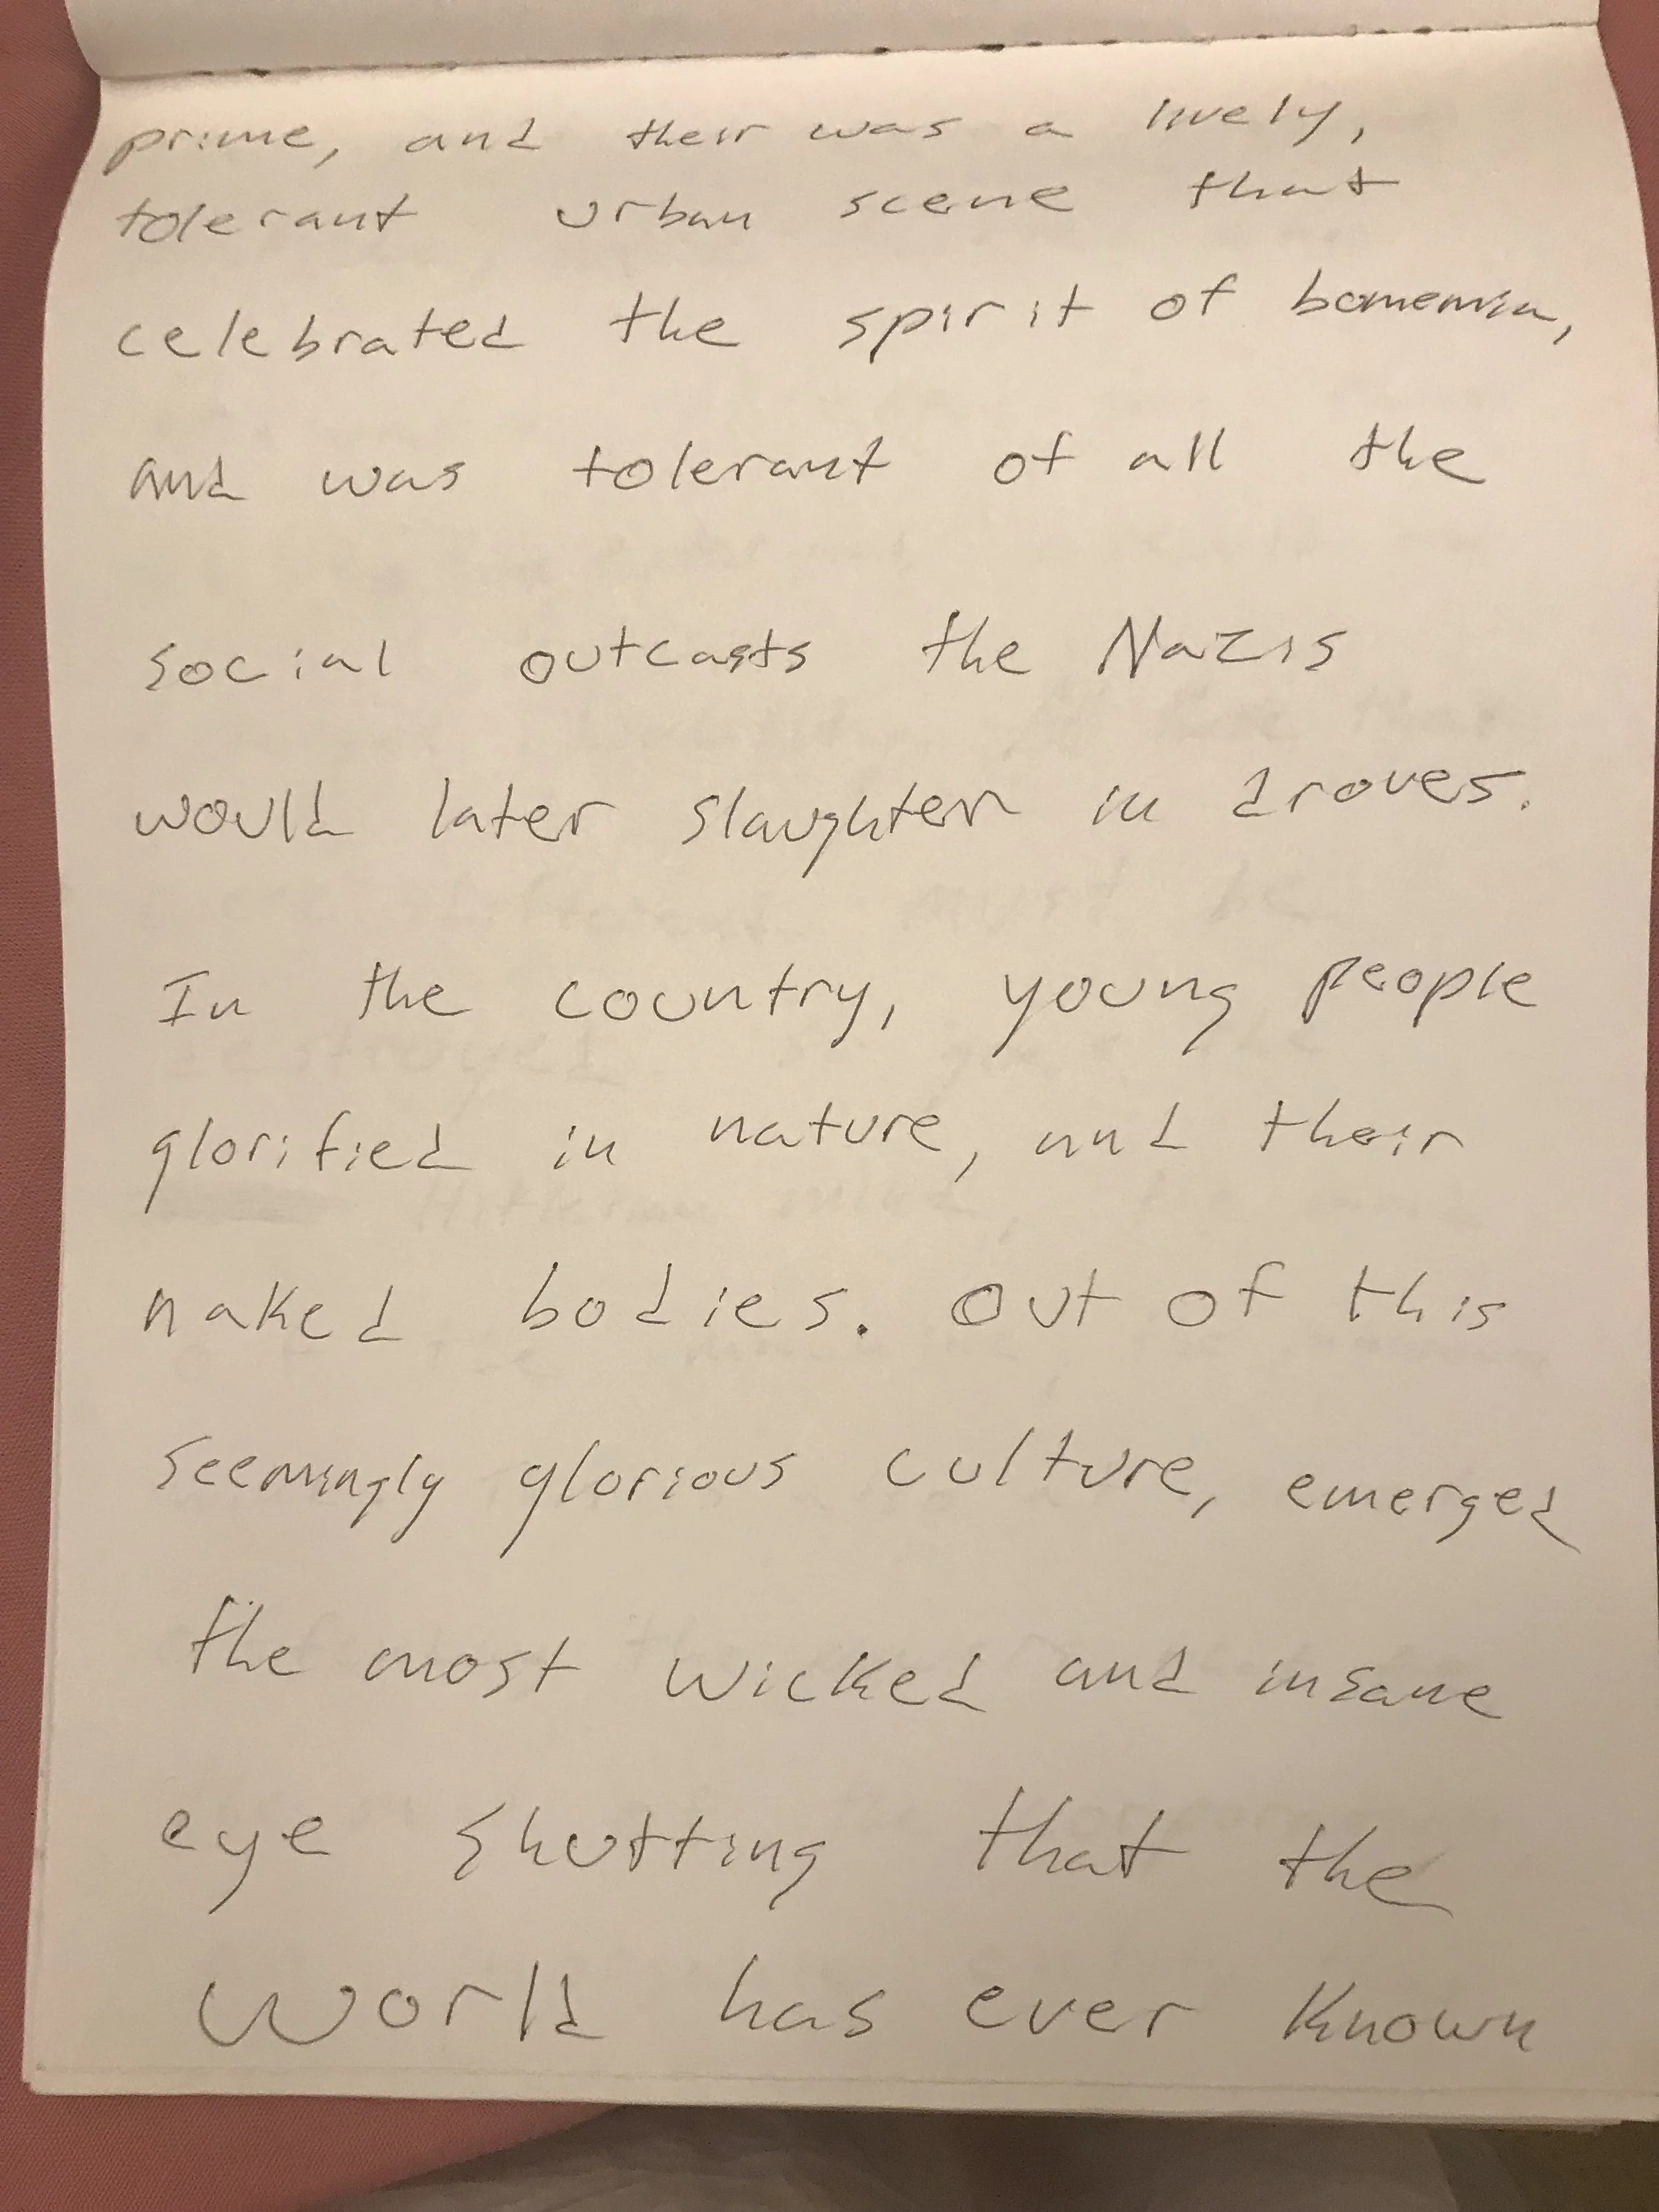 prime, and their was a lively,
tolerant urban scene that
celebrated the spirit of bomemia,
and was tolerant of all the
social outcasts the Nazis
would later slaughter in droves.
In the country, young people
glorified in nature, and their
naked bodies. Out of this
seemingly glorious culture, emerged
the most wicked and insane
eye shutting that the
world has ever known